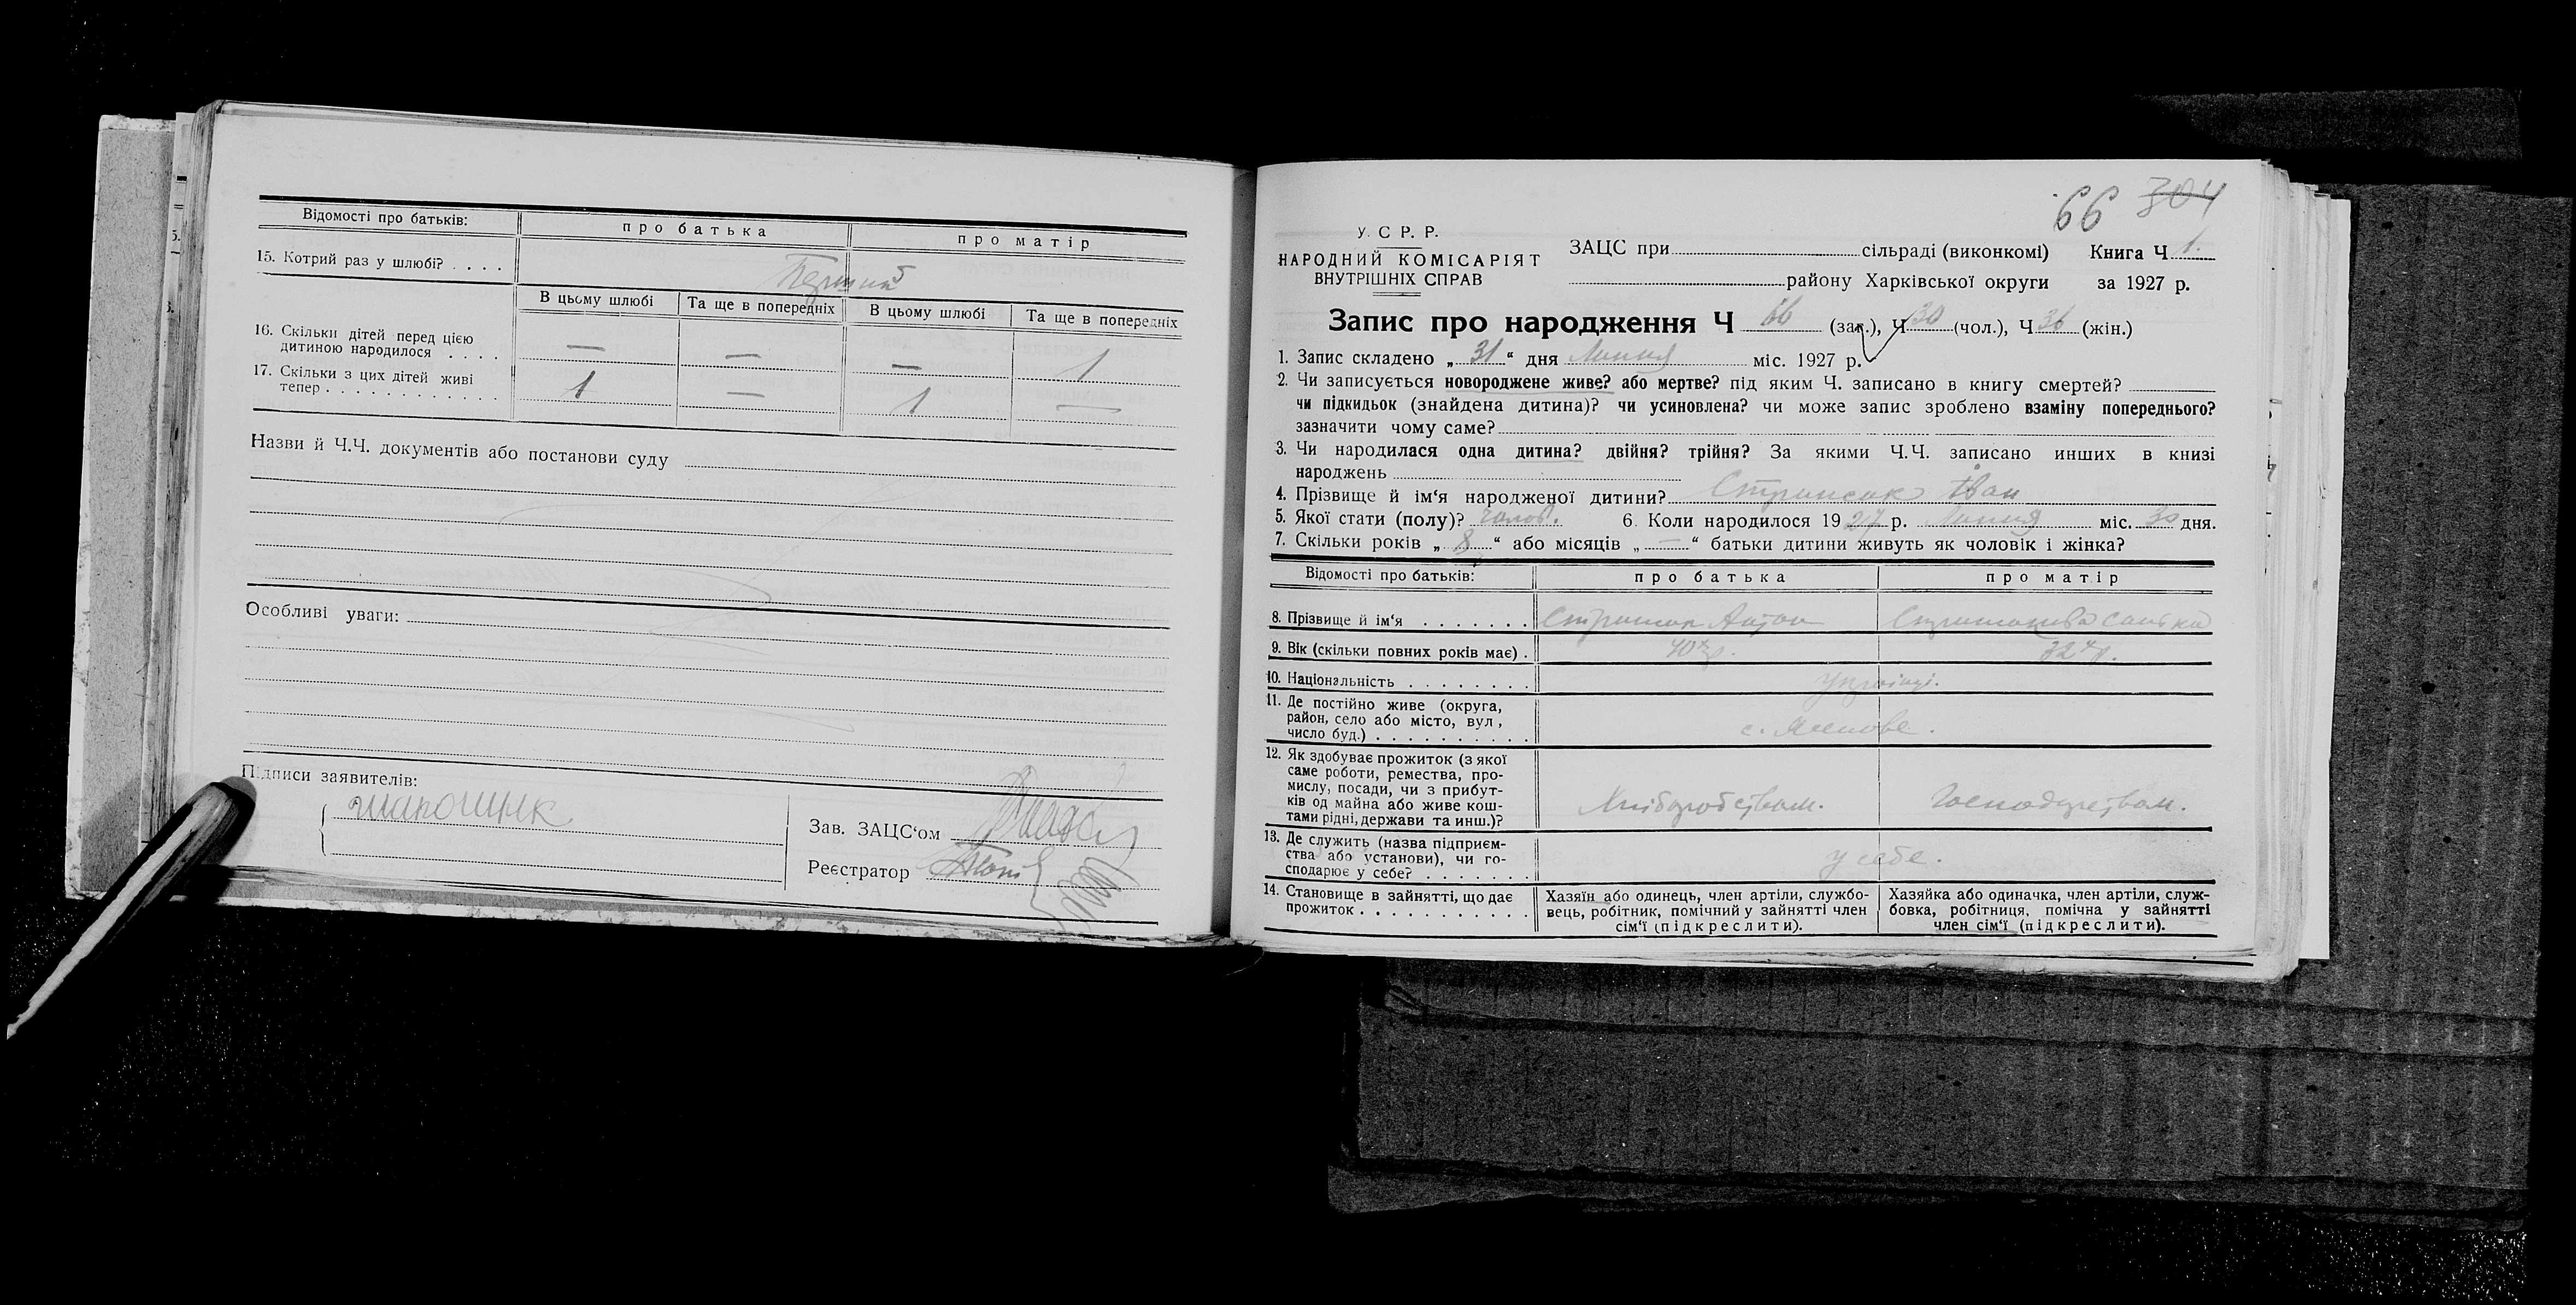 Відомості про батьків: про батька про матір
15. Котрий раз у шлюбі? . . . .
Перший
В цьому шлюбі Та ще в попередніх В цьому шлюбі Та ще в попередніх
16. Скільки дітей перед цією
дитиною народилося . . . . — — — 1
17. Скільки з цих дітей живі
тепер . . . . . . . . . . . . . 1 — 1 —
Назви й Ч.Ч. документів або постанови суду
Особливі уваги:
Підписи заявителів:
Зав. ЗАЦС‘ом
Реєстратор
66 304
У. С. Р. Р.
НАРОДНИЙ КОМІСАРІЯТ
ВНУТРІШНІХ СПРАВ
ЗАЦС при сільраді (виконкомі) Книга Ч 1.
району Харківської округи за 1927 р.
Запис про народження Ч 66 (заг.), Ч 30 (чол.), Ч 36 (жін.)
1. Запис складено „ 31 “ дня Липня міс. 1927 р.
2. Чи записується новороджене живе? або мертве? під яким Ч. записано в книгу смертей?
чи підкидьок (знайдена дитина)? чи усиновлена? чи може запис зроблено взаміну попереднього?
зазначити чому саме?
3. Чи народилася одна дитина? двійня? трійня? За якими Ч.Ч. записано инших в книзі
народжень
4. Прізвище й ім‘я народженої дитини? Іван
5. Якої стати (полу)? чолов. 6. Коли народилося 1927 р. Липня міс. 30 дня.
7. Скільки років „ 8 “ або місяців „ — “ батьки дитини живуть як чоловік і жінка?
Відомості про батьків: про батька про матір
8. Прізвище й ім‘я . . . . . . . Антон
9. Вік (скільки повних років має) . 40 р. 32 р.
10. Національність . . . . . . . . українці.
11. Де постійно живе (округа,
район, село або місто, вул,
число буд.) . . . . . . . . . . с.
12. Як здобуває прожиток (з якої
саме роботи, ремества, про-
мислу, посади, чи з прибут-
ків од майна або живе кош-
тами рідні, держави та инш.)?
Хліборобством. Господарством.
13. Де служить (назва підприєм-
ства або установи), чи го-
сподарює у себе? . . . . . . . у себе.
14. Становище в зайнятті, що дає
прожиток . . . . . . . . . . .
Хазяїн або одинець, член артіли, службо-
вець, робітник, помічний у зайнятті член
сім‘ї (підкреслити).
Хазяйка або одиначка, член артіли, служ-
бовка, робітниця, помічна у зайнятті
член сім‘ї (підкреслити).